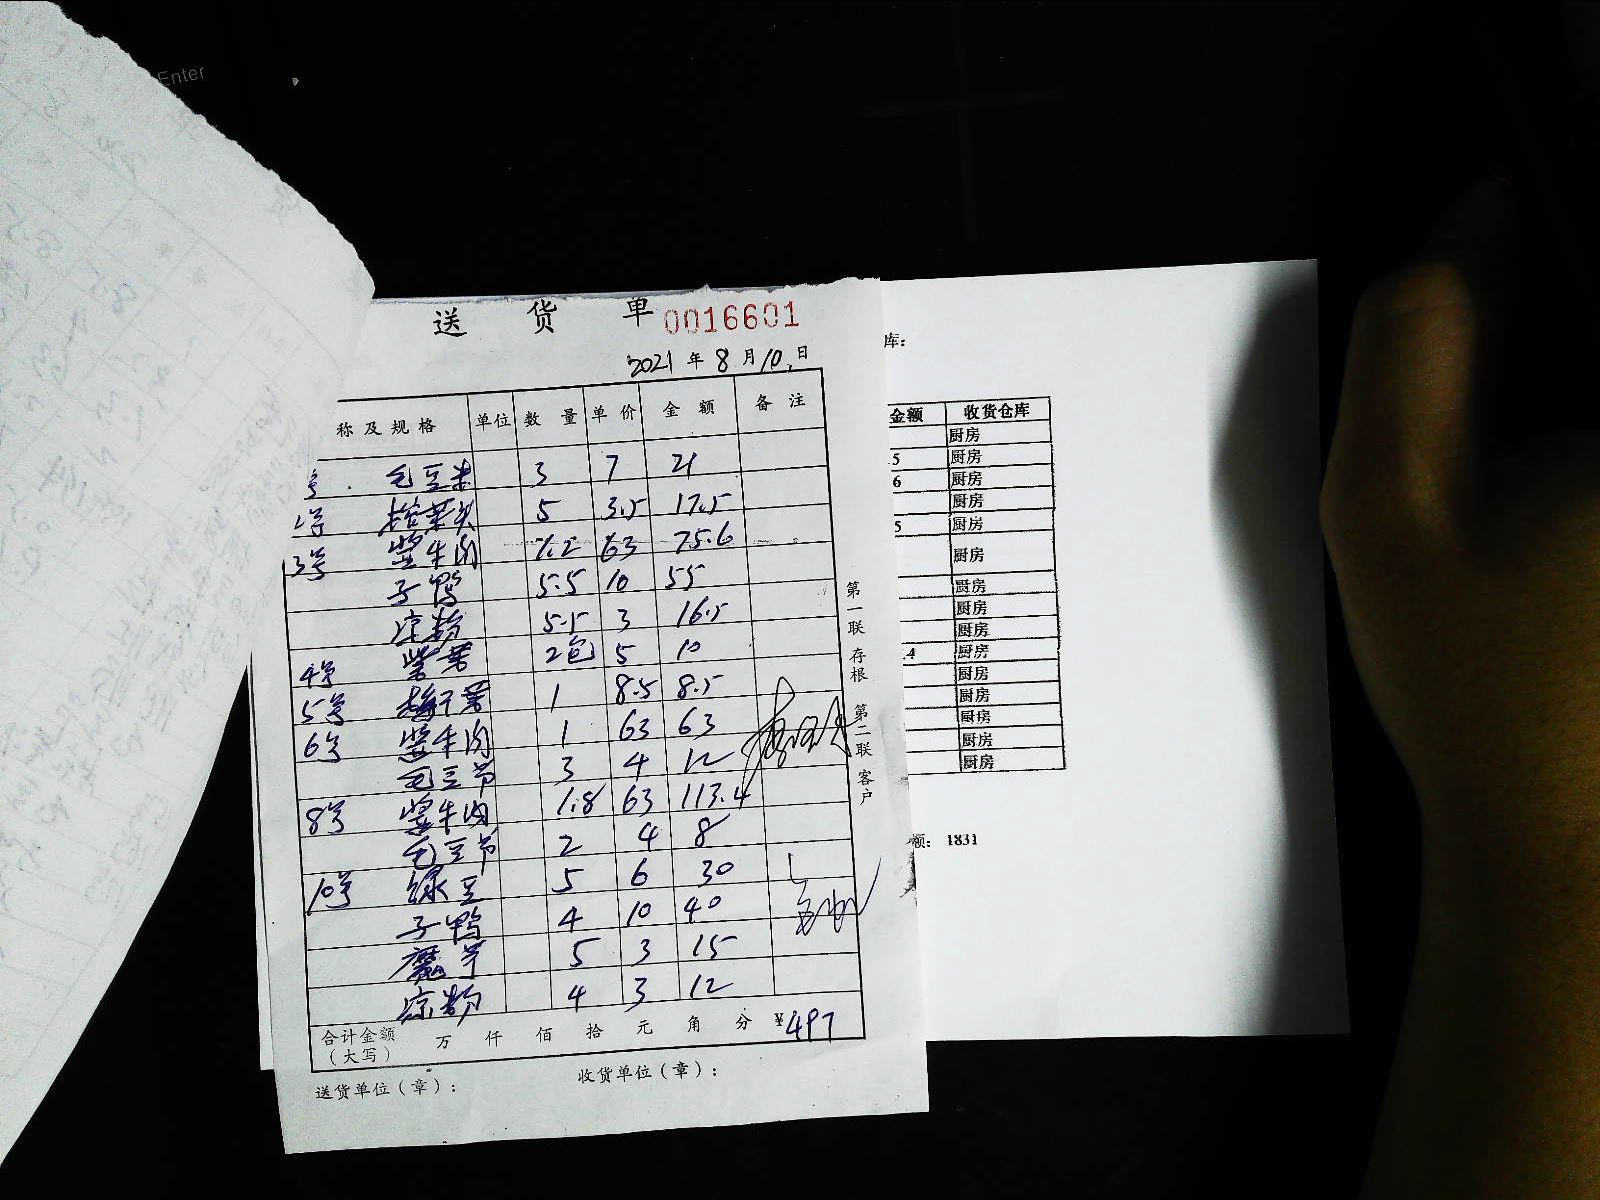 Enter
送 货 单 0016601
2021 年 8 月 10 日
称 及 规 格 单位 数 量 单 价 金 额 备 注
号 毛豆米 3 7 21
2号 榨菜头 5 3.5 17.5
3号 紫牛肉 1.2 63 75.6
子鸭 5.5 10 55
凉粉 5.5 3 16.5
4号 紫薯 2包 5 10
5号 梅干菜 1 8.5 8.5
6号 紫牛肉 1 63 63
毛豆节 3 4 12
8号 紫牛肉 1.8 63 113.4
毛豆节 2 4 8
10号 绿豆 5 6 30
子鸭 4 10 40
魔芋 5 3 15
凉粉 4 3 12
合计金额
(大写) 万 仟 佰 拾 元 角 分 ¥497
送货单位(章): 收货单位(章):
第一联 存根 第二联 客户
库:
金额 收货仓库
厨房
.5 厨房
6 厨房
厨房
5 厨房
厨房
厨房
厨房
厨房
.4 厨房
厨房
厨房
厨房
厨房
厨房
额: 1831